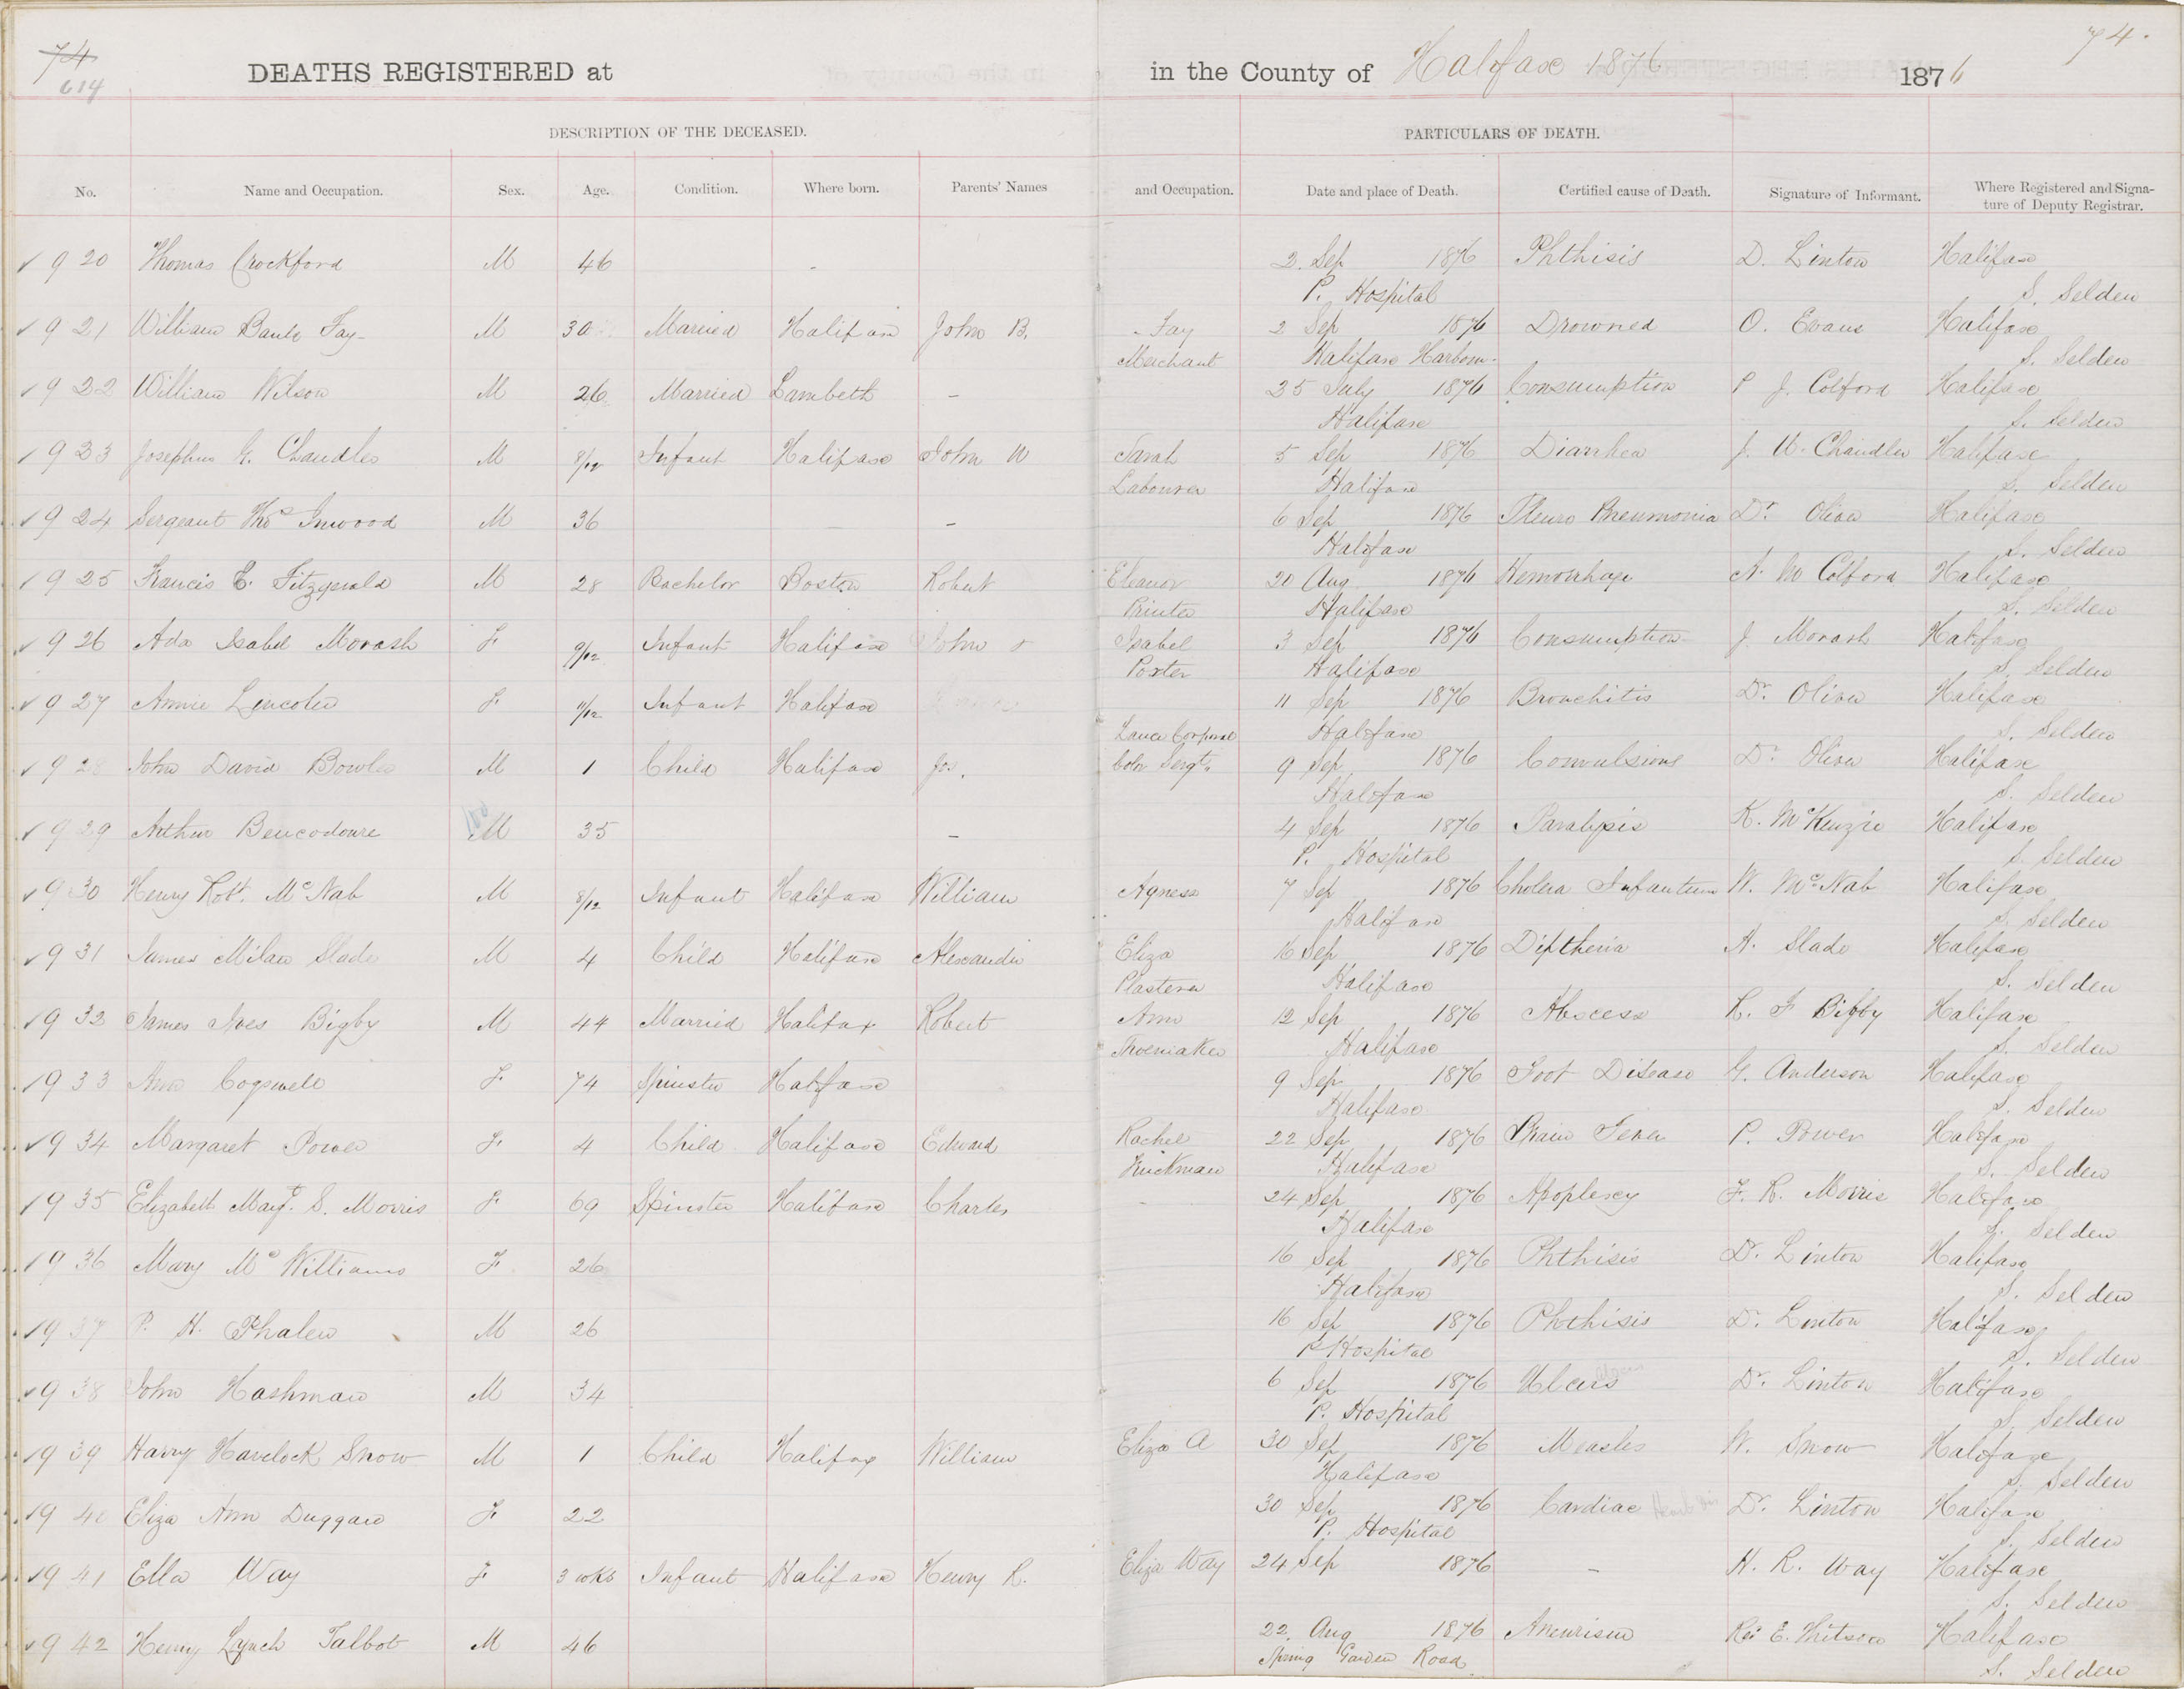 74
614
DEATHS REGISTERED at in the County of Halifax 1876 1876
74.
DESCRIPTION OF THE DECEASED. PARTICULARS OF DEATH.
No. Name and Occupation. Sex. Age. Condition. Where born. Parents' Names and Occupation. Date and place of Death. Certified cause of Death. Signature of Informant. Where Registered and Signa-
ture of Deputy Registrar.
920 Thomas Crockford M 46 - 2. Sep 1876 Phthisis D. Linton Halifax
P. Hospital S. Selden
921 William Fay- M 30 Married Halifax John B. Fay 2 Sep 1876 Drowned O. Evans Halifax
Merchant Halifax Harbour. S. Selden
922 William Wilson M 26 Married Lambeth - 25 July 1876 Consumption P J. Colford Halifax
Halifax S. Selden
923 Josephus G. Chandler M 8/12 Infant Halifax John W Sarah 5 Sep 1876 Diarrhea J. W. Chandler Halifax
Labourer Halifax S. Selden
924 Sergeant Thos Inwood M 36 - - 6 Sep 1876 Pleuro Pneumonia Dr. Oliver Halifax
Halifax S. Selden
925 Francis E. Fitzgerald M 28 Bachelor Boston Robert Eleanor 20 Aug 1876 Hemorrhage A. M Colford Halifax
Printer Halifax S. Selden
926 Ada Isabel Morash F 9/12 Infant Halifax John & Isabel 3 Sep 1876 Consumption J Morash Halifax
Porter Halifax S. Selden
927 Annie Lincoln F. 11/12 Infant Halifax 11 Sep 1876 Bronchitis Dr. Oliver Halifax
Lance Corporal Halifax S. Selden
928 John David Bowles M 1 Child Halifax Jos. Colr Sergt. 9 Sep 1876 Convulsions Dr Oliver Halifax
Halifax S. Selden
929 Arthur M 35 - 4 Sep 1876 Paralysis K. McKenzie Halifax
P. Hospital S. Selden
930 Henry Robt. McNab M 8/12 Infant Halifax William Agness 7 Sep 1876 Cholera Infantum W. McNab Halifax
Halifax S. Selden
931 James Milan Slade M 4 Child Halifax Alexander Eliza 16 Sep 1876 Diptheria A. Slade Halifax
Plasterer Halifax S. Selden
932 James Ives Bigby M 44 Married Halifax Robert Ann 12 Sep 1876 Abscess R. F Bigby Halifax
Shoemaker Halifax S. Selden
933 Ann Cogswell F. 74 Spinster Halifax 9 Sep 1876 Foot Disease G. Anderson Halifax
Halifax S. Selden
934 Margaret Power F. 4 Child Halifax Edward Rachel 22 Sep 1876 Brain Fever P. Power Halifax
Truckman Halifax S. Selden
935 Elizabeth Margt. S. Morris F. 69 Spinster Halifax Charles - 24 Sep 1876 Apoplexy F. R. Morris Halifax
Halifax S. Selden
936 Mary McWilliams F. 26 16 Sep 1876 Phthisis D. Linton Halifax
Halifax S. Selden
937 P. H. Phalen M 26 16 Sep 1876 Phthisis D. Linton Halifax
P Hospital S. Selden
938 John Hashman M 34 6 Sep 1876 Ulcers Dr. Linton Halifax
P. Hospital S. Selden
939 Harry Havelock Snow M 1 Child Halifax William Eliza A 30 Sep 1876 Measles W. Snow Halifax
Halifax S. Selden
940 Eliza Ann Duggan F. 22 30 Sep 1876 Cardiac Dr. Linton Halifax
P. Hospital S. Selden
941 Ella Way F 3 wks Infant Halifax Henry R. Eliza Way 24 Sep 1876 - H. R. Way Halifax
S. Selden
942 Henry Lynch Talbot M 46 22. Aug 1876 Aneurism Halifax
Spring Garden Road S. Selden